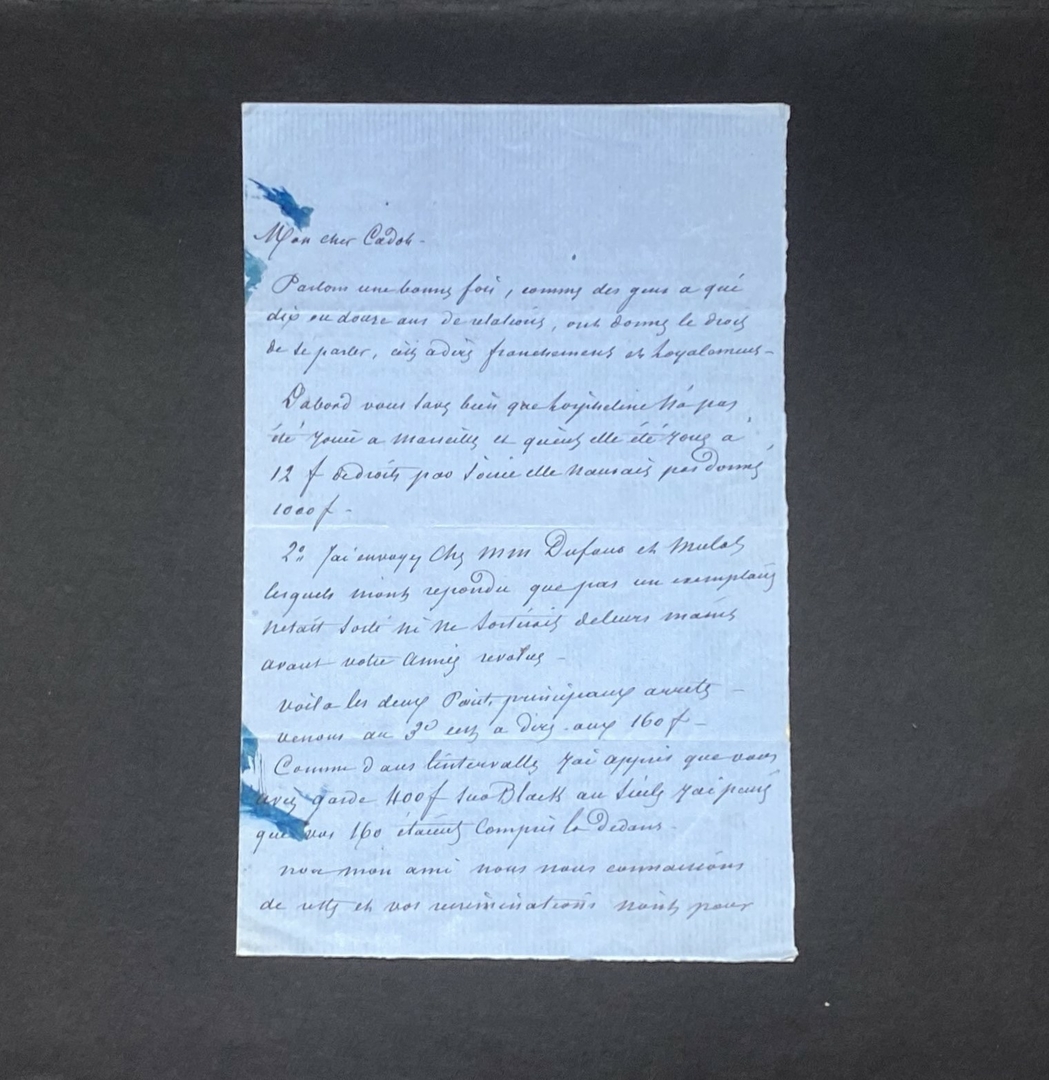 Mon cher Cadot.
Parlons une bonne fois, comme des gens a qui
dix ou douze ans de relations, ont donné le droit
de se parler, c'est a dire franchement et loyalement –
D'abord vous savez bien que l'orpheline n'a pas
été jouée a Marseille et qu'eut elle été jouée a
12 f de droits par soirée elle n'aurait pas donné
1000 f –
2° J'ai envoyé chez mm Dufour et Mulat
lesquels m'ont repondu que pas un exemplaire
netait sorti ni ne sortirait de leurs mains
avant votre année revolue –
Voila les deux Points principaux arretés –
venons au 3e c'est a dire aux 160 f –
Comme dans l'intervalle J'ai appris que vous
avez gardé 400 f sur Black au Siècle J'ai pensé
que vos 160 étaient compris la dedans.
non mon ami nous nous connaissons
de reste et vos recriminations n'ont pour